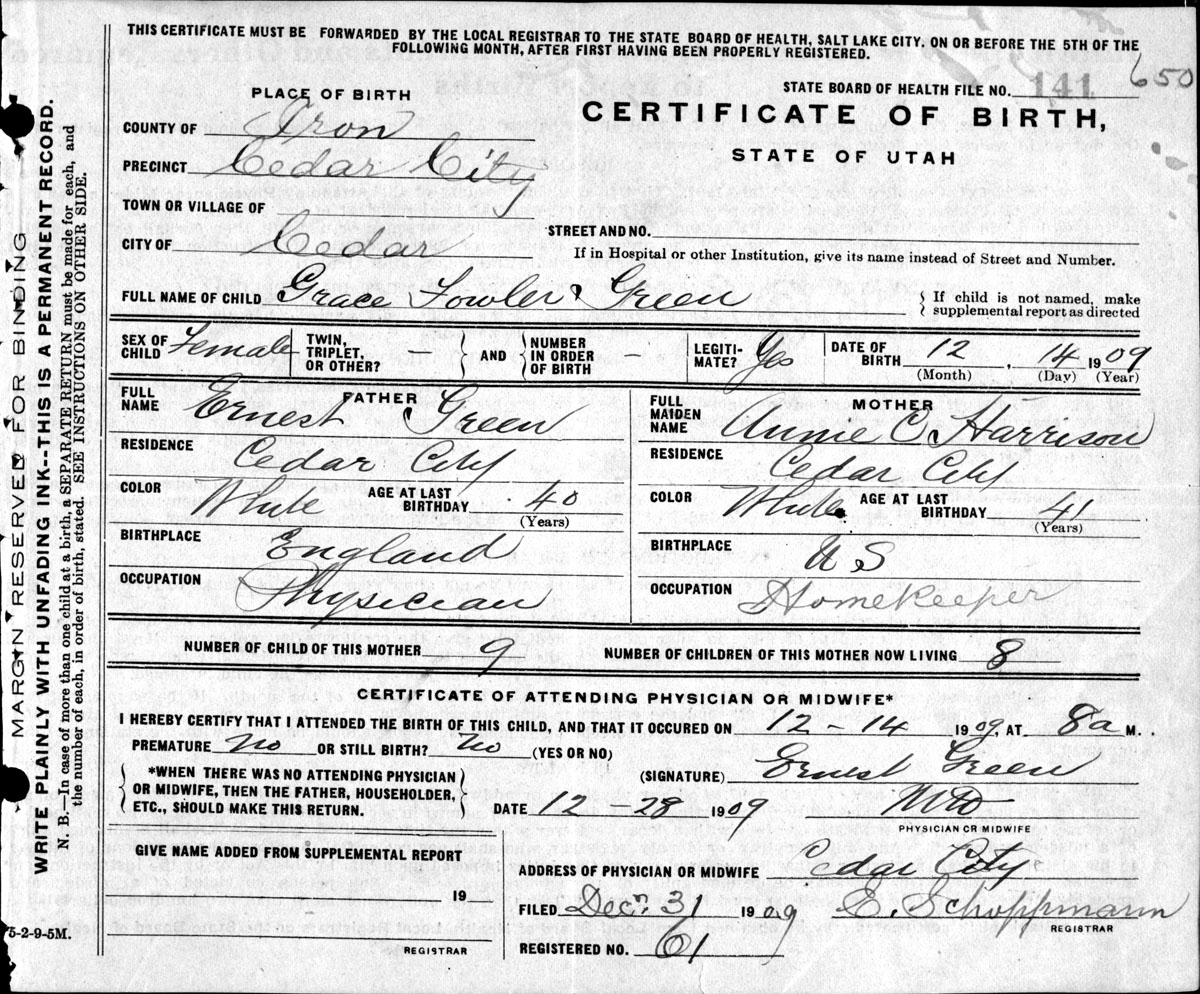 THIS CERTIFICATE MUST BE FORWARDED BY THE LOCAL REGISTRAR TO THE STATE BOARD OF HEALTH, SALT LAKE CITY, ON OR BEFORE THE 5TH OF THE
FOLLOWING MONTH, AFTER FIRST HAVING BEEN PROPERLY REGISTERED.
STATE BOARD OF HEALTH FILE NO. 141 650
PLACE OF BIRTH
CERTIFICATE OF BIRTH,
STATE OF UTAH
COUNTY OF Iron
PRECINCT Cedar City
TOWN OR VILLAGE OF
CITY OF Cedar STREET AND NO.
If in Hospital or other Institution, give its name instead of Street and Number.
FULL NAME OF CHILD Grace Fowler Green
If child is not named, make
supplemental report as directed
SEX OF CHILD Female TWIN, TRIPLET, OR OTHER? AND NUMBER IN ORDER OF BIRTH – LEGITI-MATE? Yes DATE OF BIRTH 12, 14 1909
(Month) (Day) (Year)
FATHER
FULL NAME Ernest Green
RESIDENCE Cedar City
COLOR White AGE AT LAST BIRTHDAY 40
(Years)
BIRTHPLACE England
OCCUPATION Physician
MOTHER
FULL MAIDEN NAME Annie C Harrison
RESIDENCE Cedar City
COLOR White AGE AT LAST BIRTHDAY 41
(Years)
BIRTHPLACE U S
OCCUPATION Homekeeper
NUMBER OF CHILD OF THIS MOTHER 9 NUMBER OF CHILDREN OF THIS MOTHER NOW LIVING 8
CERTIFICATE OF ATTENDING PHYSICIAN OR MIDWIFE*
I HEREBY CERTIFY THAT I ATTENDED THE BIRTH OF THIS CHILD, AND THAT IT OCCURED ON 12 – 14 1909, AT 8a M.
PREMATURE No OR STILL BIRTH? No (YES OR NO)
*WHEN THERE WAS NO ATTENDING PHYSICIAN
OR MIDWIFE, THEN THE FATHER, HOUSEHOLDER,
ETC., SHOULD MAKE THIS RETURN.
(SIGNATURE) Ernest Green
DATE 12 – 28 1909
PHYSICIAN OR MIDWIFE
GIVE NAME ADDED FROM SUPPLEMENTAL REPORT
19
REGISTRAR
ADDRESS OF PHYSICIAN OR MIDWIFE Cedar City
FILED Dec. 31 1909 E. Schoppmann
REGISTRAR
REGISTERED NO. 61
5-2-9-5M.
MARGIN RESERVED FOR BINDING
WRITE PLAINLY WITH UNFADING INK--THIS IS A PERMANENT RECORD.
N. B.—In case of more than one child at a birth, a SEPARATE RETURN must be made for each, and
the number of each, in order of birth, stated. SEE INSTRUCTIONS ON OTHER SIDE.